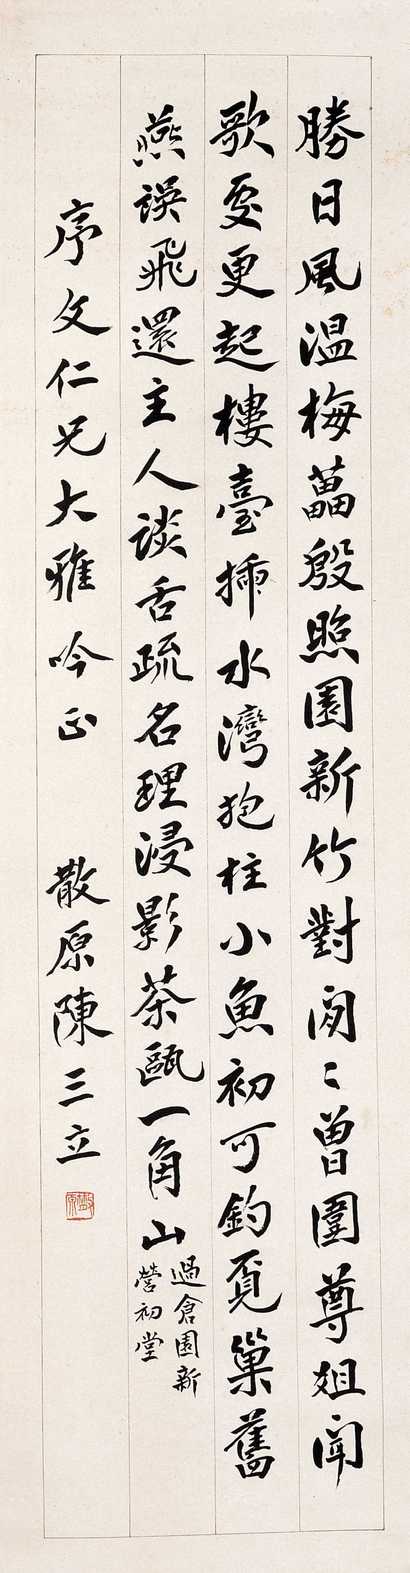 勝日風温梅蕾殷照園新竹對閑〻曾圍尊俎聞
歌處更起樓臺揷水灣抱柱小魚初可釣覓巢舊
燕誤飛還主人談舌疏名理浸影茶甌一角山
過倉園新
營初堂
序文仁兄大雅吟正 散原陳三立